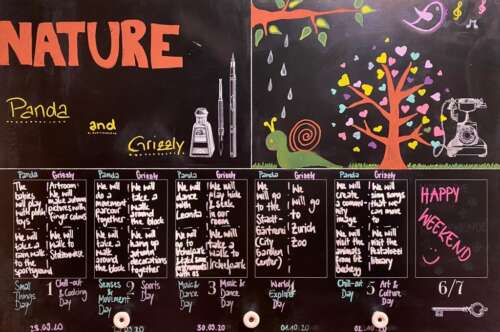 NATURE
Panda
and
Grizzly
Panda Grizzly
The
babies
will play
with
Artroom:
We will
make
pictures
with
finger colors
We will
take a
walk to
the
sportsground
We will
walk to
1
Small
Things
Day
Chill-out &
Cooking
Day
28.09.20
Panda Grizzly
We will
do a
movement
parcour
together
We will
take a
walk
around the
block
We will
take a
walk
around
the block
We will
hang up
autumn
decorations
together
2
Senses &
Movement
Day
Sports
Day
Panda Grizzly
We will
dance
with
Leonita
We will
play hide
& seek
in our
room
We will
go to
We will
take a
walk to
3
Music &
Dance
Day
Music &
Dance
Day
30.09.20
Panda Grizzly
We
will
go to
Stadt-
Gärtnerei
(City
Garden
Center)
We
will
go to
Zurich
Zoo
World
Explorer
Day
01.10.20
Panda Grizzly
We will
create a
community
image
We will
sing songs
that we
can move
to
We will
visit the
animals
We will
visit the
Pestalozzi
library
5
Chill-out
Day
Art &
Culture
Day
02.10.20
HAPPY
WEEKEND
6/7